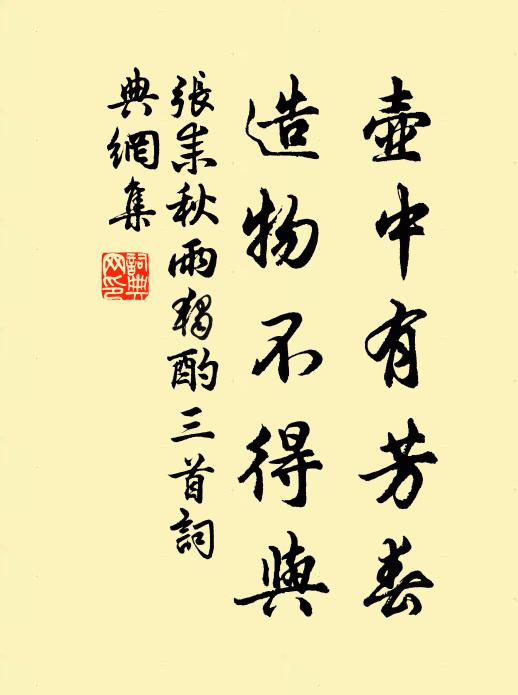 壺中有芳春
造物不得與
張耒秋雨獨酌三首詞
典網集
詞典網印